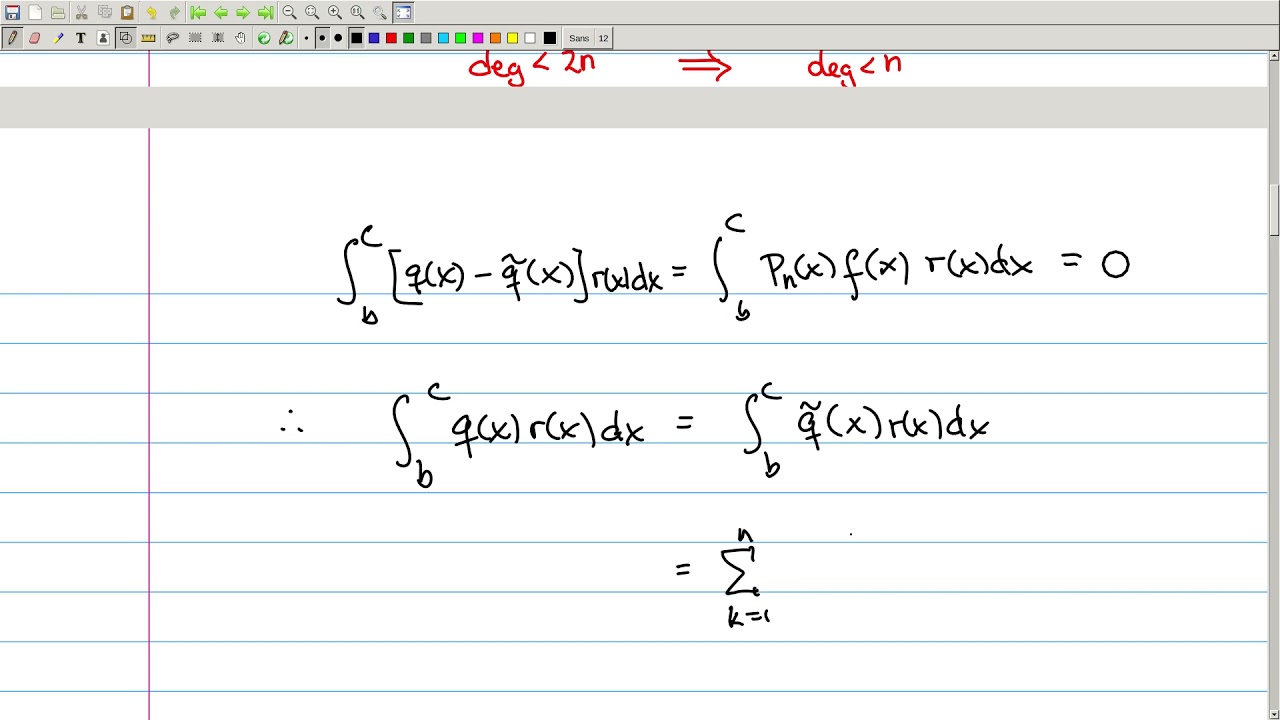 T Sans 12
deg < 2n ⟹ deg < n
∫_b^c [q(x) − q̃(x)] r(x)dx = ∫_b^c Pₙ(x) f(x) r(x)dx = 0
∴ ∫_b^c q(x) r(x) dx = ∫_b^c q̃(x) r(x) dx
= ∑_{k=1}^n